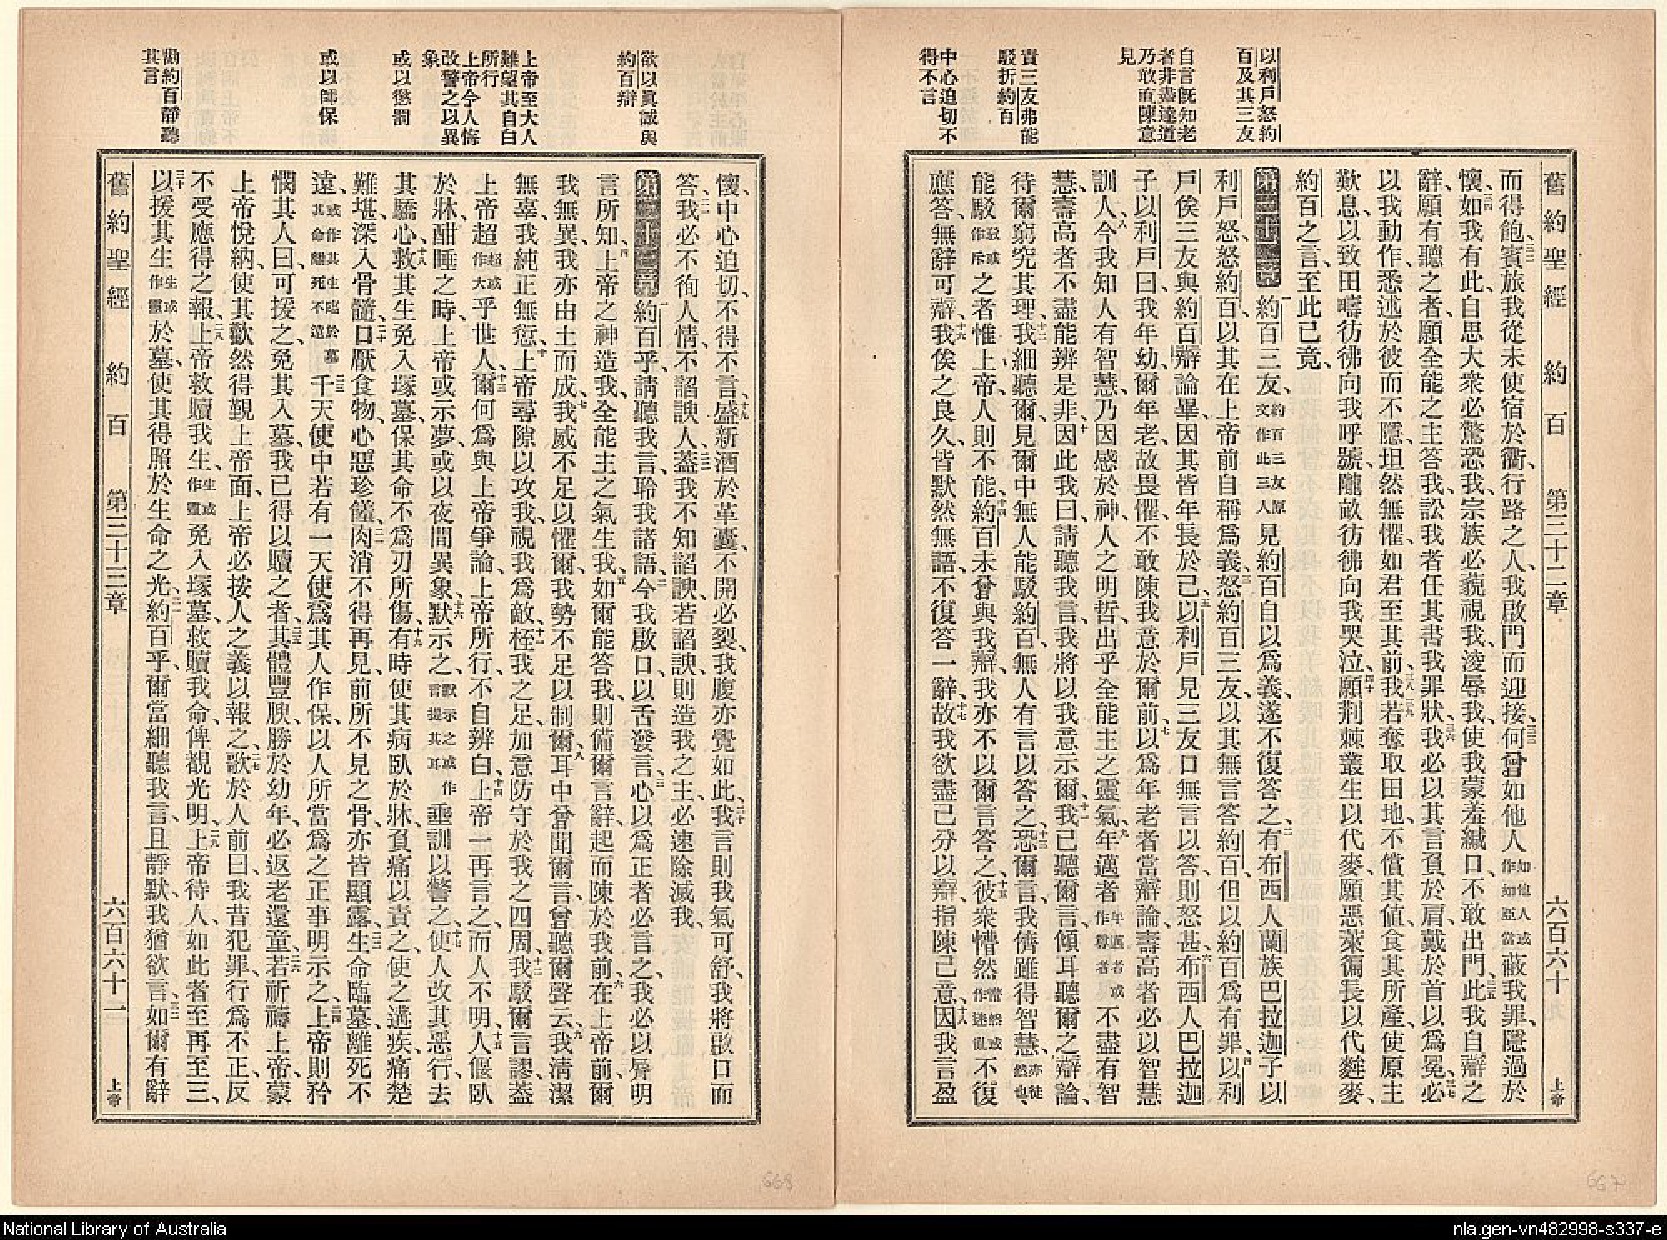 以利戶怒約
百及其三友
自言旣知老
者非盡達道
乃敢直陳意
見
責三友弗能
駁折約百
中心迫切不
得不言
舊約聖經 約百 第三十二章 六百六十 上帝
而得飽、三二賓旅我從未使宿於衢、行路之人、我啟門而迎接、三三何曾如他人如他人或作如亞當蔽我罪、隱過於
懷、三四如我有此、自思大衆必驚恐我、宗族必藐視我、凌辱我、使我蒙羞緘口、不敢出門、三五此我自辯之
辭、願有聽之者、願全能之主答我、訟我者任其書我罪狀、三六我必以其言負於肩、戴於首以爲冕、三七必
以我動作、悉述於彼而不隱、坦然無懼、如君至其前、三八我若奪取田地、三九不償其值、食其所產、使原主
歎息、以致田疇彷彿向我呼號、隴畝彷彿向我哭泣、四十願荆棘叢生以代麥、願惡菜徧長以代麰麥、
約百之言、至此已竟、
第三十二章 一約百三友、約百三友原文作此三人見約百自以爲義、遂不復答之、二有布西人蘭族巴拉迦子以
利戶怒、怒約百以其在上帝前自稱爲義、三怒約百三友、以其無言答約百、但以約百爲有罪、四以利
戶俟三友與約百辯論畢、因其皆年長於己、五以利戶見三友口無言以答、則怒甚、六布西人巴拉迦
子以利戶曰、我年幼、爾年老、故畏懼不敢陳我意於爾前、七以爲年老者當辯論、壽高者必以智慧
訓人、八今我知人有智慧、乃因感於神、人之明哲出乎全能主之靈氣、九年邁者年邁者或作尊者不盡有智
慧、壽高者不盡能辨是非、十因此我曰、請聽我言、我將以我意示爾、十一我已聽爾言、傾耳聽爾之辯論、
待爾窮究其理、十二我細聽爾、見爾中無人能駁約百、無人有言以答之、十三恐爾言、我儕雖得智慧、亦徒然也
能駁駁或作斥之者惟上帝、人則不能、十四約百未曾與我辯、我亦不以爾言答之、十五彼衆懵然懵然或作迷亂不復
應答、無辭可辯、十六我俟之良久、皆默然無語、不復答一辭、十七故我欲盡己分以辯、指陳己意、十八因我言盈
欲以眞誠與
約百辯
上帝至大人
難望其自白
所行
上帝令人悔
改警之以異
象
或以懲罰
或以師保
勸約百靜聽
其言
懷、中心迫切、不得不言、十九盛新酒於革囊、不開必裂、我腹亦覺如此、二十我言則我氣可舒、我將啟口而
答、二一我必不徇人情、不諂諛人、二二蓋我不知諂諛、若諂諛、則造我之主必速除滅我、
第三十三章 一約百乎、請聽我言、聆我諸語、二今我啟口、以舌發言、三心以爲正者必言之、我必以脣明
言所知、四上帝之神造我、全能主之氣生我、五如爾能答我、則備爾言辭、起而陳於我前、六在上帝前、爾
我無異、我亦由土而成、七我威不足以懼爾、我勢不足以制爾、八爾耳中曾聞爾言、曾聽爾聲云、九我淸潔
無辜、我純正無愆、十上帝尋隙以攻我、視我爲敵、十一桎我之足、加意防守於我之四周、十二我駁爾言謬、蓋
上帝超超或作大乎世人、十三爾何爲與上帝爭論、上帝所行、不自辨白、十四上帝一再言之、而人不明、十五人偃臥
於牀、酣睡之時、上帝或示夢、或以夜間異象、默示之、十六默示之或作言提其耳垂訓以警之、十七使人改其惡行、去
其驕心、十八救其生免入塚墓、保其命不爲刃所傷、十九有時使其病臥於牀、負痛以責之、使之遘疾、痛楚
難堪、深入骨髓、二十口厭食物、心惡珍饈、二一肉消不得再見、前所不見之骨、亦皆顯露、二二生命臨墓、離死不
遠、或作其生近於墓其命離死不遠二三千天使中、若有一天使爲其人作保、以人所當爲之正事明示之、二四上帝則矜
憫其人曰、可援之免其入墓、我已得以贖之者、二五其體豐腴勝於幼年、必返老還童、二六若祈禱上帝、蒙
上帝悅納、使其歡然得覲上帝面、上帝必按人之義以報之、二七歌於人前曰、我昔犯罪、行爲不正、反
不受應得之報、二八上帝救贖我生生或作靈免入塚墓、救贖我命俾觀光明、二九上帝待人如此者、至再至三、
三十以援其生生或作靈於墓、使其得照於生命之光、三一約百乎、爾當細聽我言、且靜默、我猶欲言、三二如爾有辭、
舊約聖經 約百 第三十三章 六百六十一 上帝
668
667
National Library of Australia
nla.gen-vn482998-s337-e